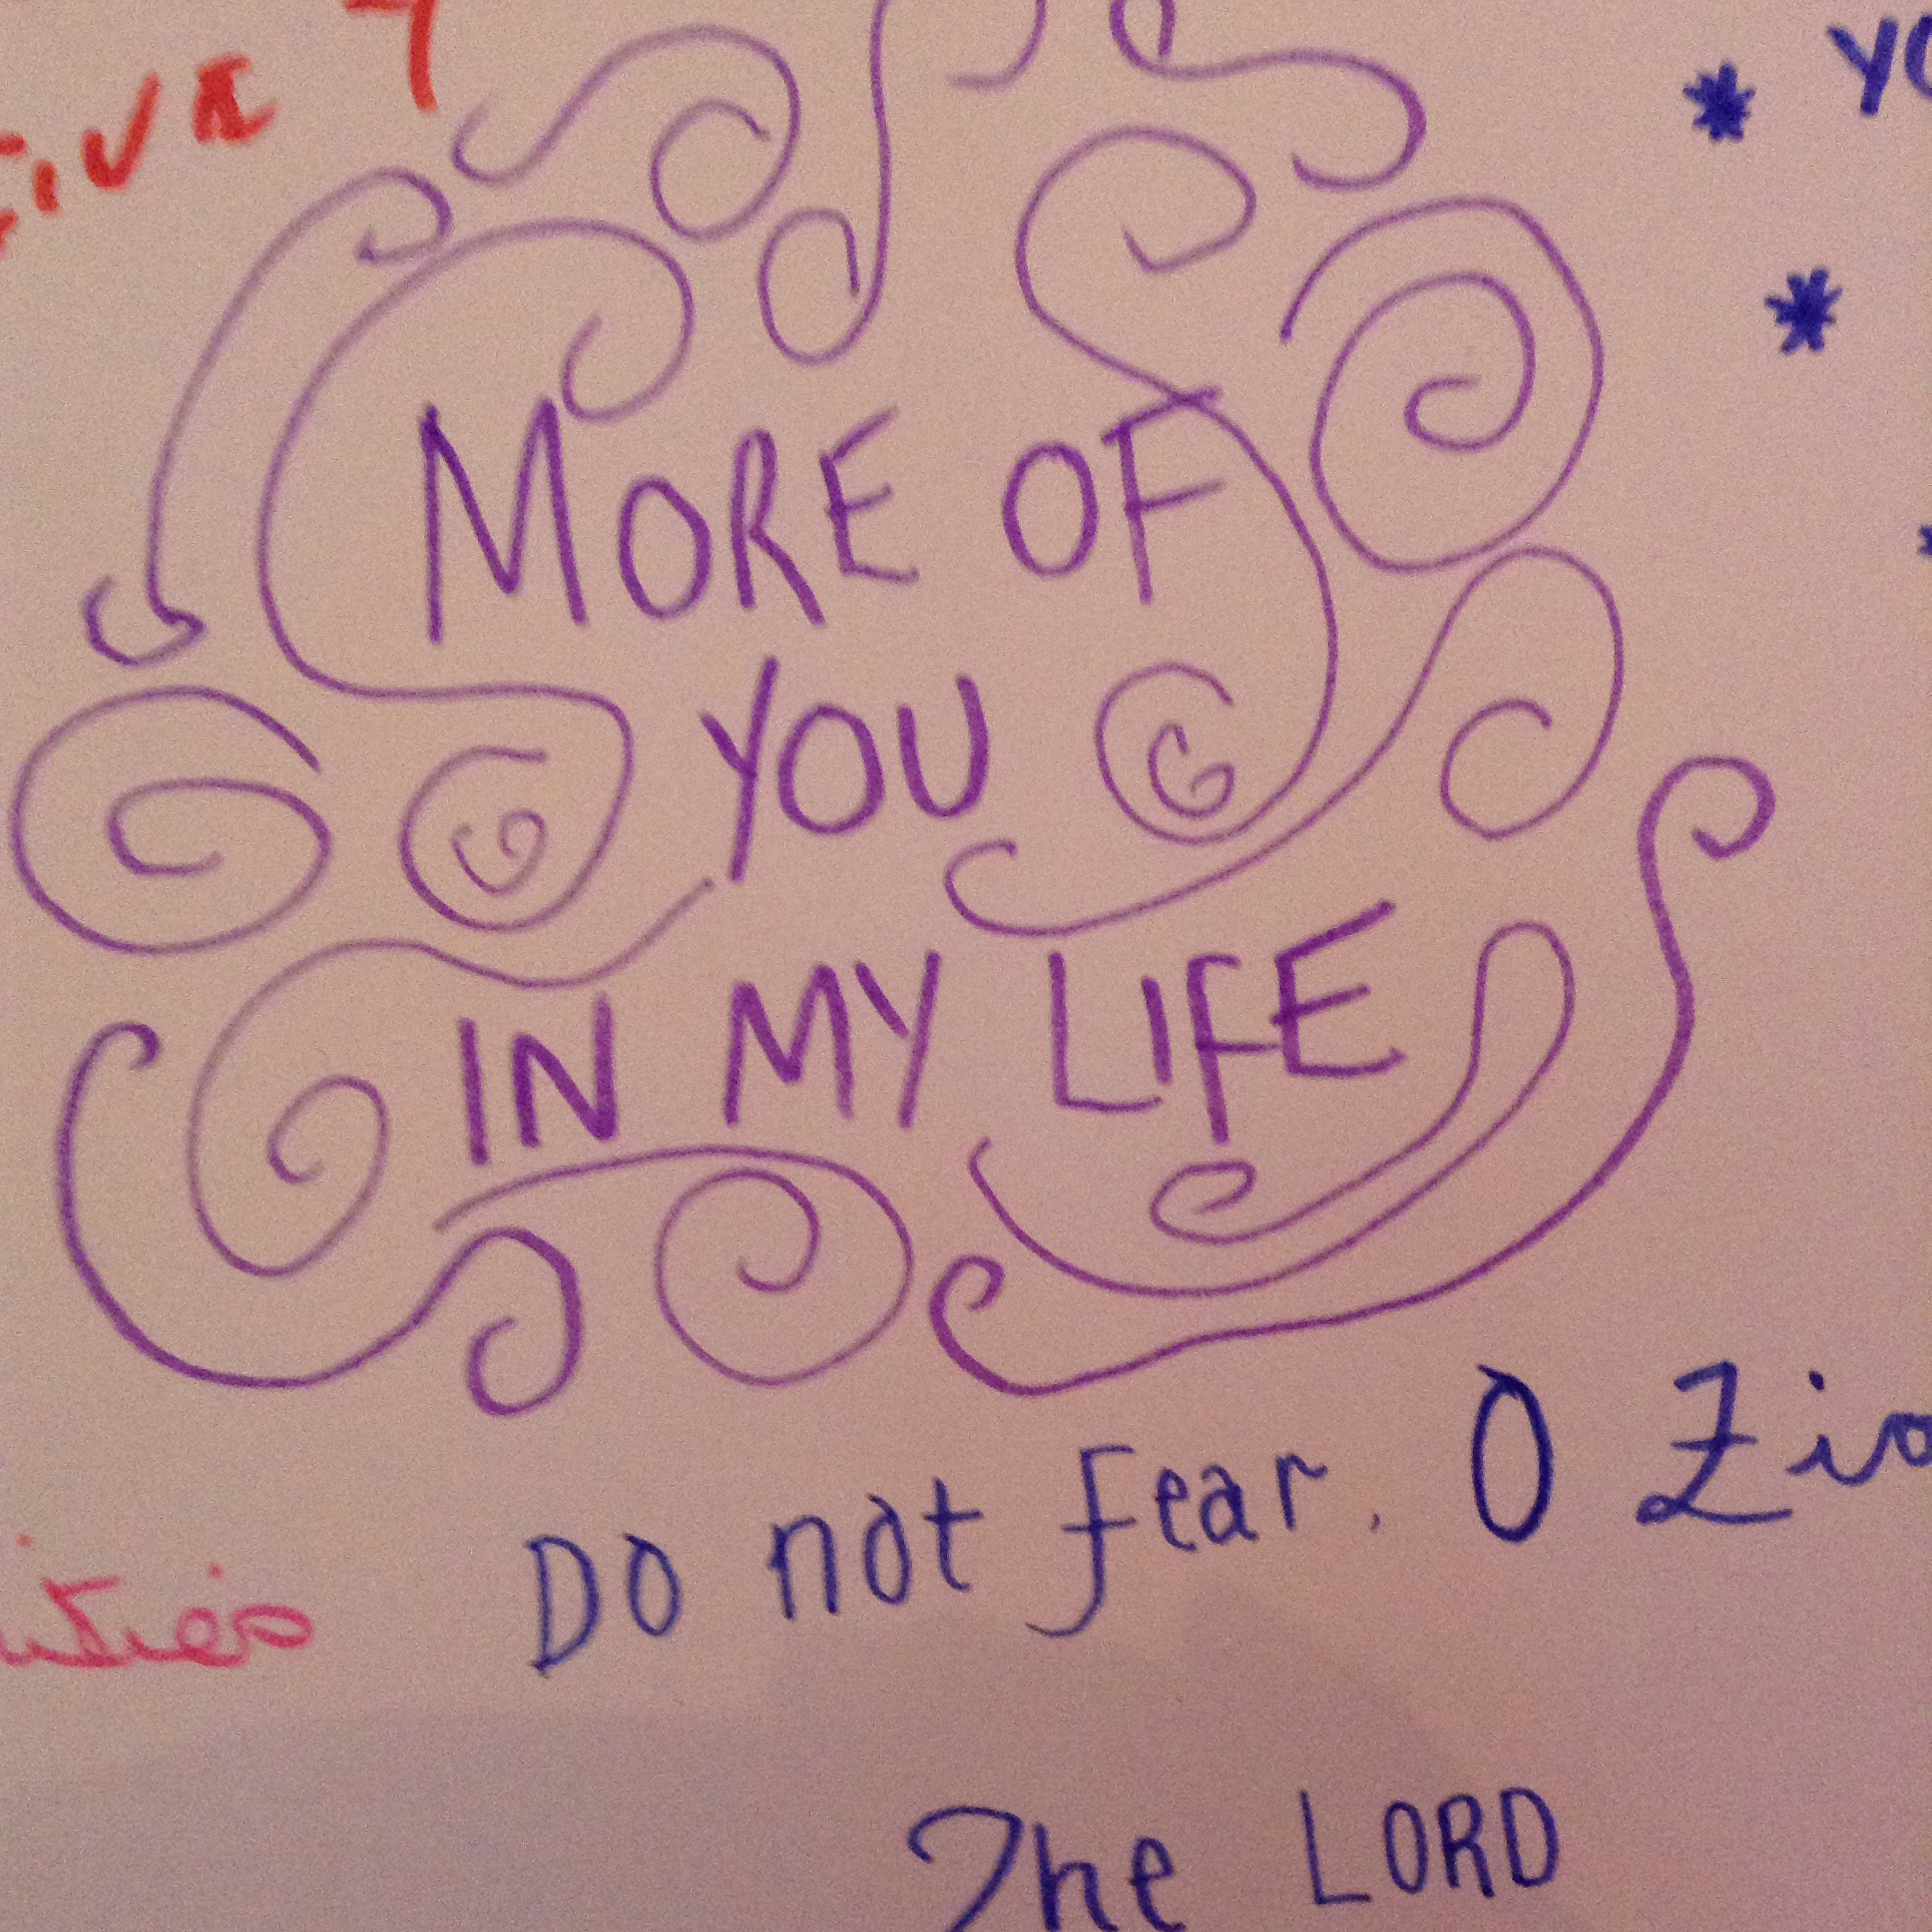 MORE OF
YOU
IN MY LIFE
Do not fear, O Zio
The LORD